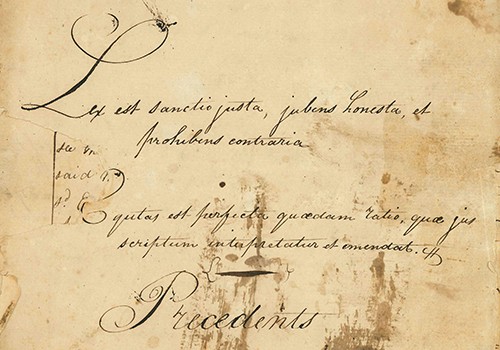 Lex est sanctio justa, jubens honesta, et
prohibens contraria
said
Equitas est perfecta quædam ratio, quæ jus
scriptum interpretatur et emendat.
Precedents